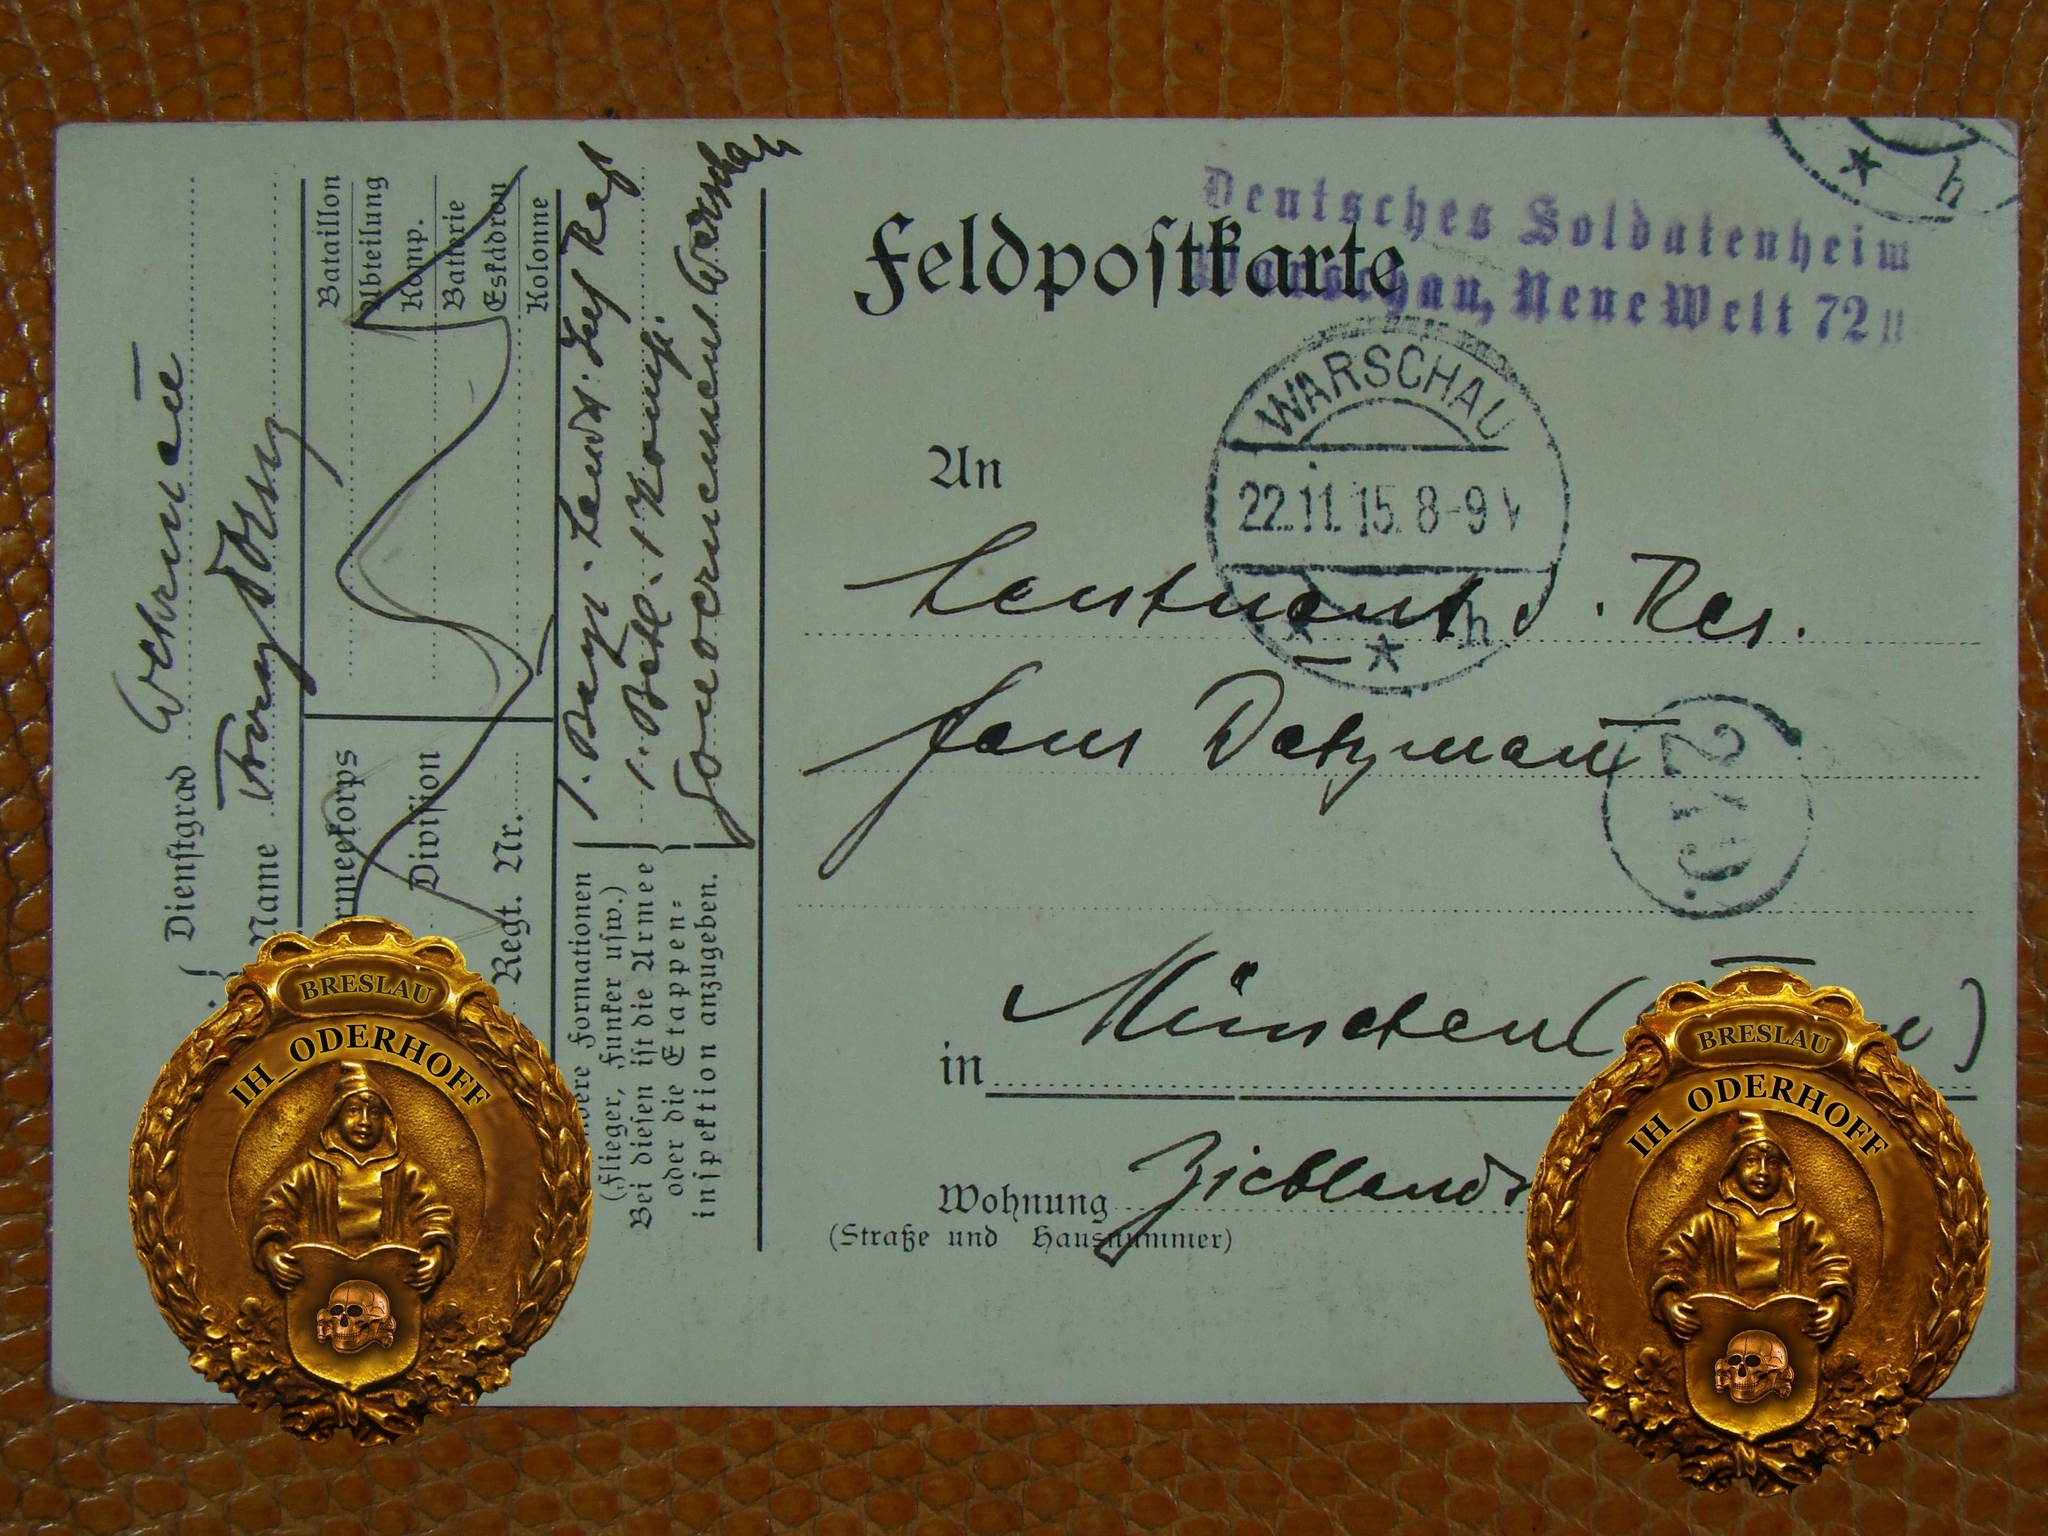 Deutsches Soldatenheim
Warschau, Neue Welt 72
Feldpostkarte
WARSCHAU
22.11.15. 8-9 V
* h
* h
An
Leutnant d. Res.
Hans Datzmann
240.
in München
Wohnung Zieblands
(Straße und Hausnummer)
Dienstgrad Wehrmann
Name Franz
Bataillon
Abteilung
Komp.
Batterie
Eskadron
Kolonne
rmeekorps
Division
Regt. Nr.
1. Bayr. Landst. Inf. Reg
1. Batl. 1 Komp.
Gouvernement Warschau
dere Formationen
(Flieger, Funker usw.)
Bei diesen ist die Armee
oder die Etappen-
inspektion anzugeben.
BRESLAU
IH_ODERHOFF
BRESLAU
IH_ODERHOFF